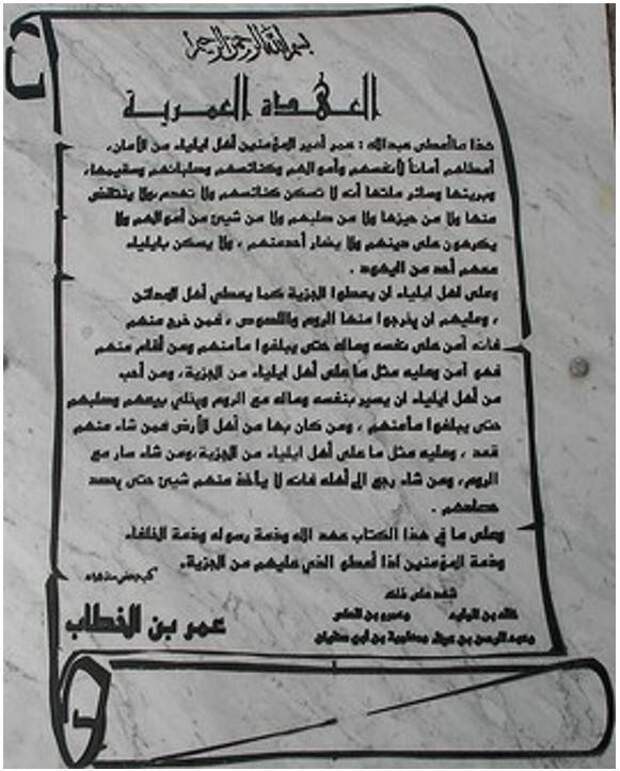 بسم الله الرحمن الرحيم
العهدة العمرية
هذا ما أعطى عبدالله : عمر أمير المؤمنين أهل ايلياء من الأمان،
أعطاهم أماناً لأنفسهم وأموالهم وكنائسهم وصلبانهم وسقيمها،
وبريئها وسائر ملتها أنه لا تسكن كنائسهم ولا تهدم،ولا ينتقض
منها ولا من حيزها ولا من صلبهم ولا من شيئ من أموالهم ولا
يكرهون على دينهم ولا يضار أحدمنهم ، ولا يسكن بايلياء
معهم أحد من اليهود .
وعلى اهل ايلياء ان يعطوا الجزية كما يعطي أهل المدائن
، وعليهم ان يخرجوا منها الروم واللصوص ، فمن خرج منهم
فانه آمن على نفسه وماله حتى يبلغوا مأمنهم ومن أقام منهم
فهو آمن وعليه مثل ما على أهل ايلياء من الجزية، ومن أحب
من أهل ايلياء ان يسير بنفسه وماله مع الروم ويخلي بيعهم وصلبهم
حتى يبلغوا مأمنهم ، ومن كان بها من أهل الأرض فمن شاء منهم
قعد ، وعليه مثل ما على أهل ايلياء من الجزية،ومن شاء سار مع
الروم، ومن شاء رجع الى أهله فانه لا يأخذ منهم شيئ حتى يحصد
حصادهم .
وعلى ما في هذا الكتاب عهد الله وذمة رسوله وذمة الخلفاء
وذمة المؤمنين اذا أعطو الذي عليهم من الجزية.
شهد على ذلك
خالد بن الوليد وعمرو بن العاص
وعبد الرحمن بن عوف ومعاوية بن ابي سفيان
عمر بن الخطاب